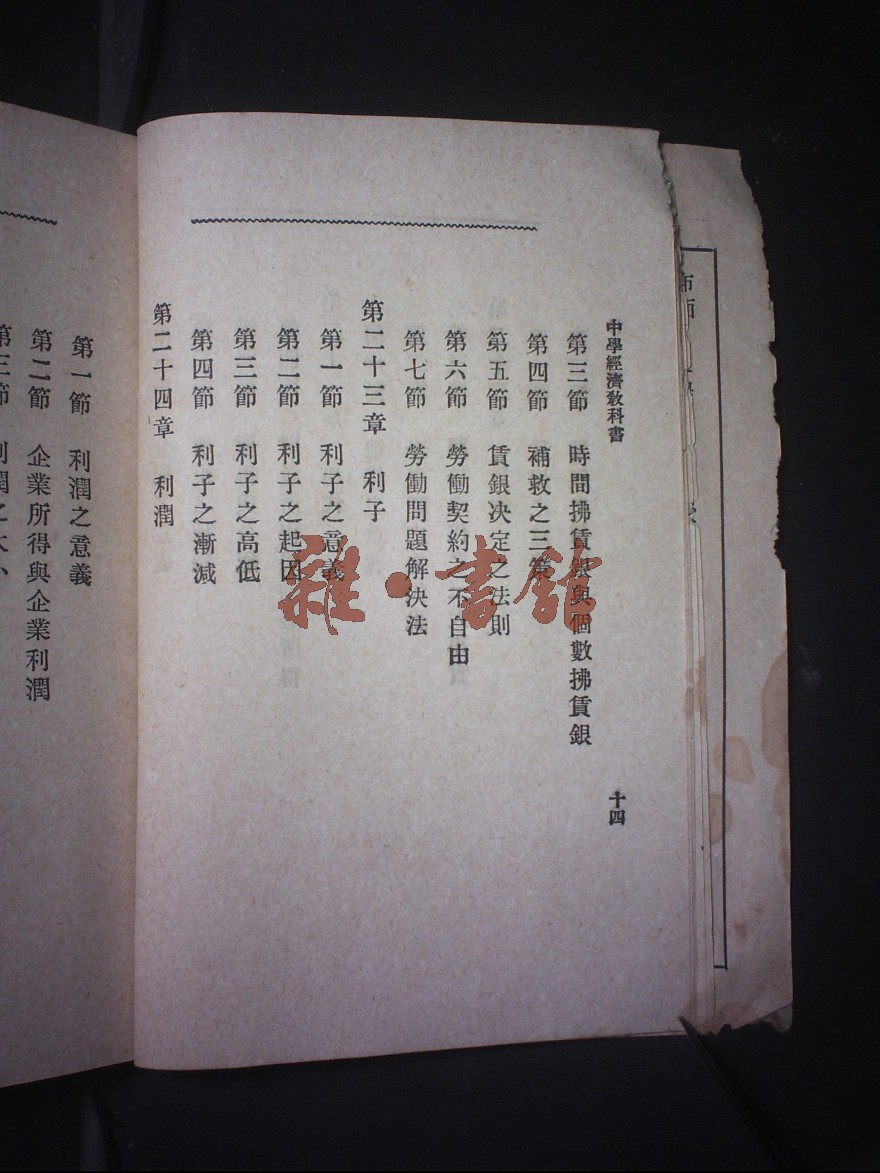 中學經濟教科書
十四
第三節 時間拂賃銀與個數拂賃銀
第四節 補救之三策
第五節 賃銀決定之法則
第六節 勞働契約之不自由
第七節 勞働問題解決法
第二十三章 利子
第一節 利子之意義
第二節 利子之起因
第三節 利子之高低
第四節 利子之漸減
第二十四章 利潤
第一節 利潤之意義
第二節 企業所得與企業利潤
第三節 利潤之大小
雜·書館